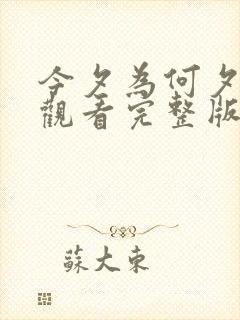 今夕為何夕
觀看完整版
蘇大東